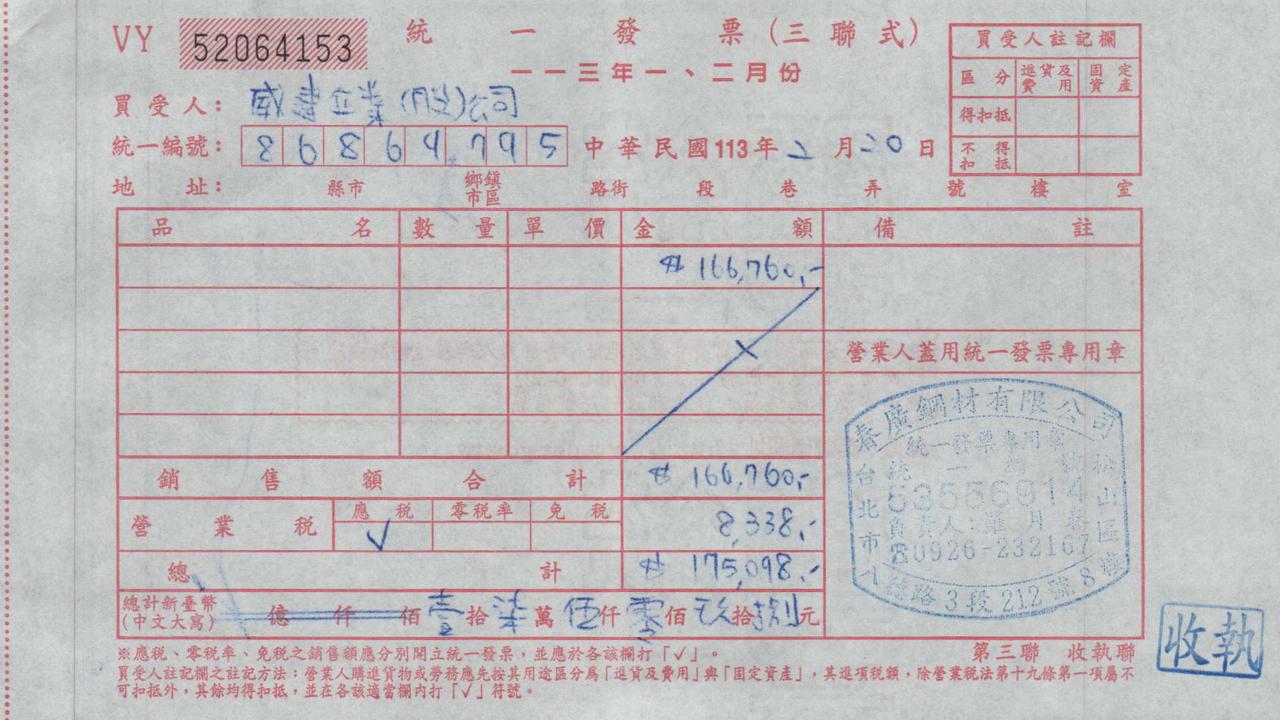 VY 52064153 統一發票(三聯式)
一一三年一、二月份
買受人註記欄
區分 進貨及費用 固定資產
得扣抵
不得扣抵
買受人: 威 立業(股)公司
統一編號: 86864795 中華民國113年2月20日
地址: 縣市 鄉鎮市區 路街 段 巷 弄 號 樓 室
品名 數量 單價 金額 備註
$166,760.-
營業人蓋用統一發票專用章
銷售額合計 $166,760.-
營業稅 應稅 零稅率 免稅
✓ 8,338.-
總計 $175,098.-
總計新臺幣(中文大寫) 億 仟 佰 壹拾柒萬伍仟零佰玖拾捌元
廣鋼材有限公司
統一發票專用章
統一編號
53556914
負責人: 月
☎0926-232167
台北市松山區八德路3段212號8樓
※應稅、零稅率、免稅之銷售額應分別開立統一發票,並應於各該欄打「✓」。
買受人註記欄之註記方法:營業人購進貨物或勞務應先按其用途區分為「進貨及費用」與「固定資產」,其進項稅額,除營業稅法第十九條第一項屬不
可扣抵外,其餘均得扣抵,並在各該適當欄內打「✓」符號。
第三聯 收執聯
收執